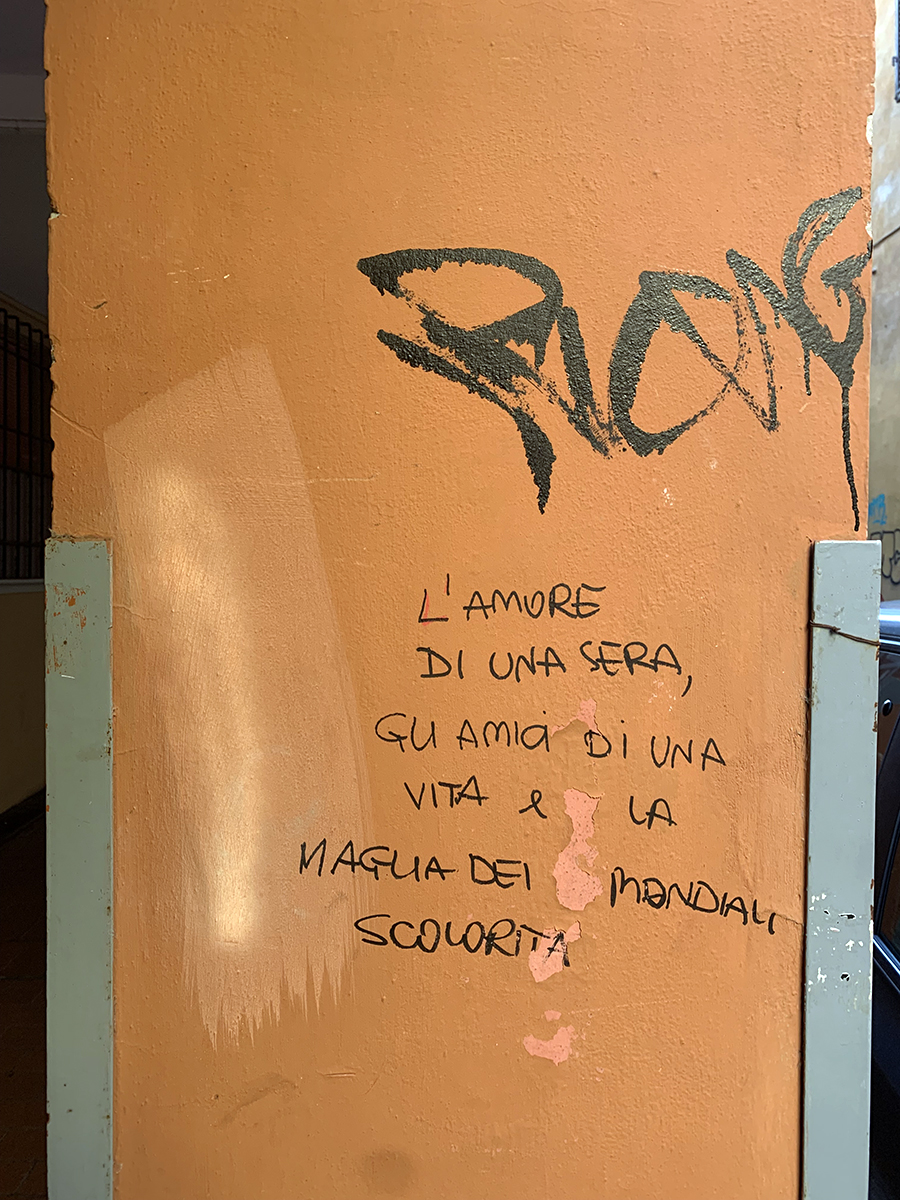 L'AMORE
DI UNA SERA,
GLI AMICi Di UNA
VITA e LA
MAGLIA DEI MONDIALI
SCOLORiTA